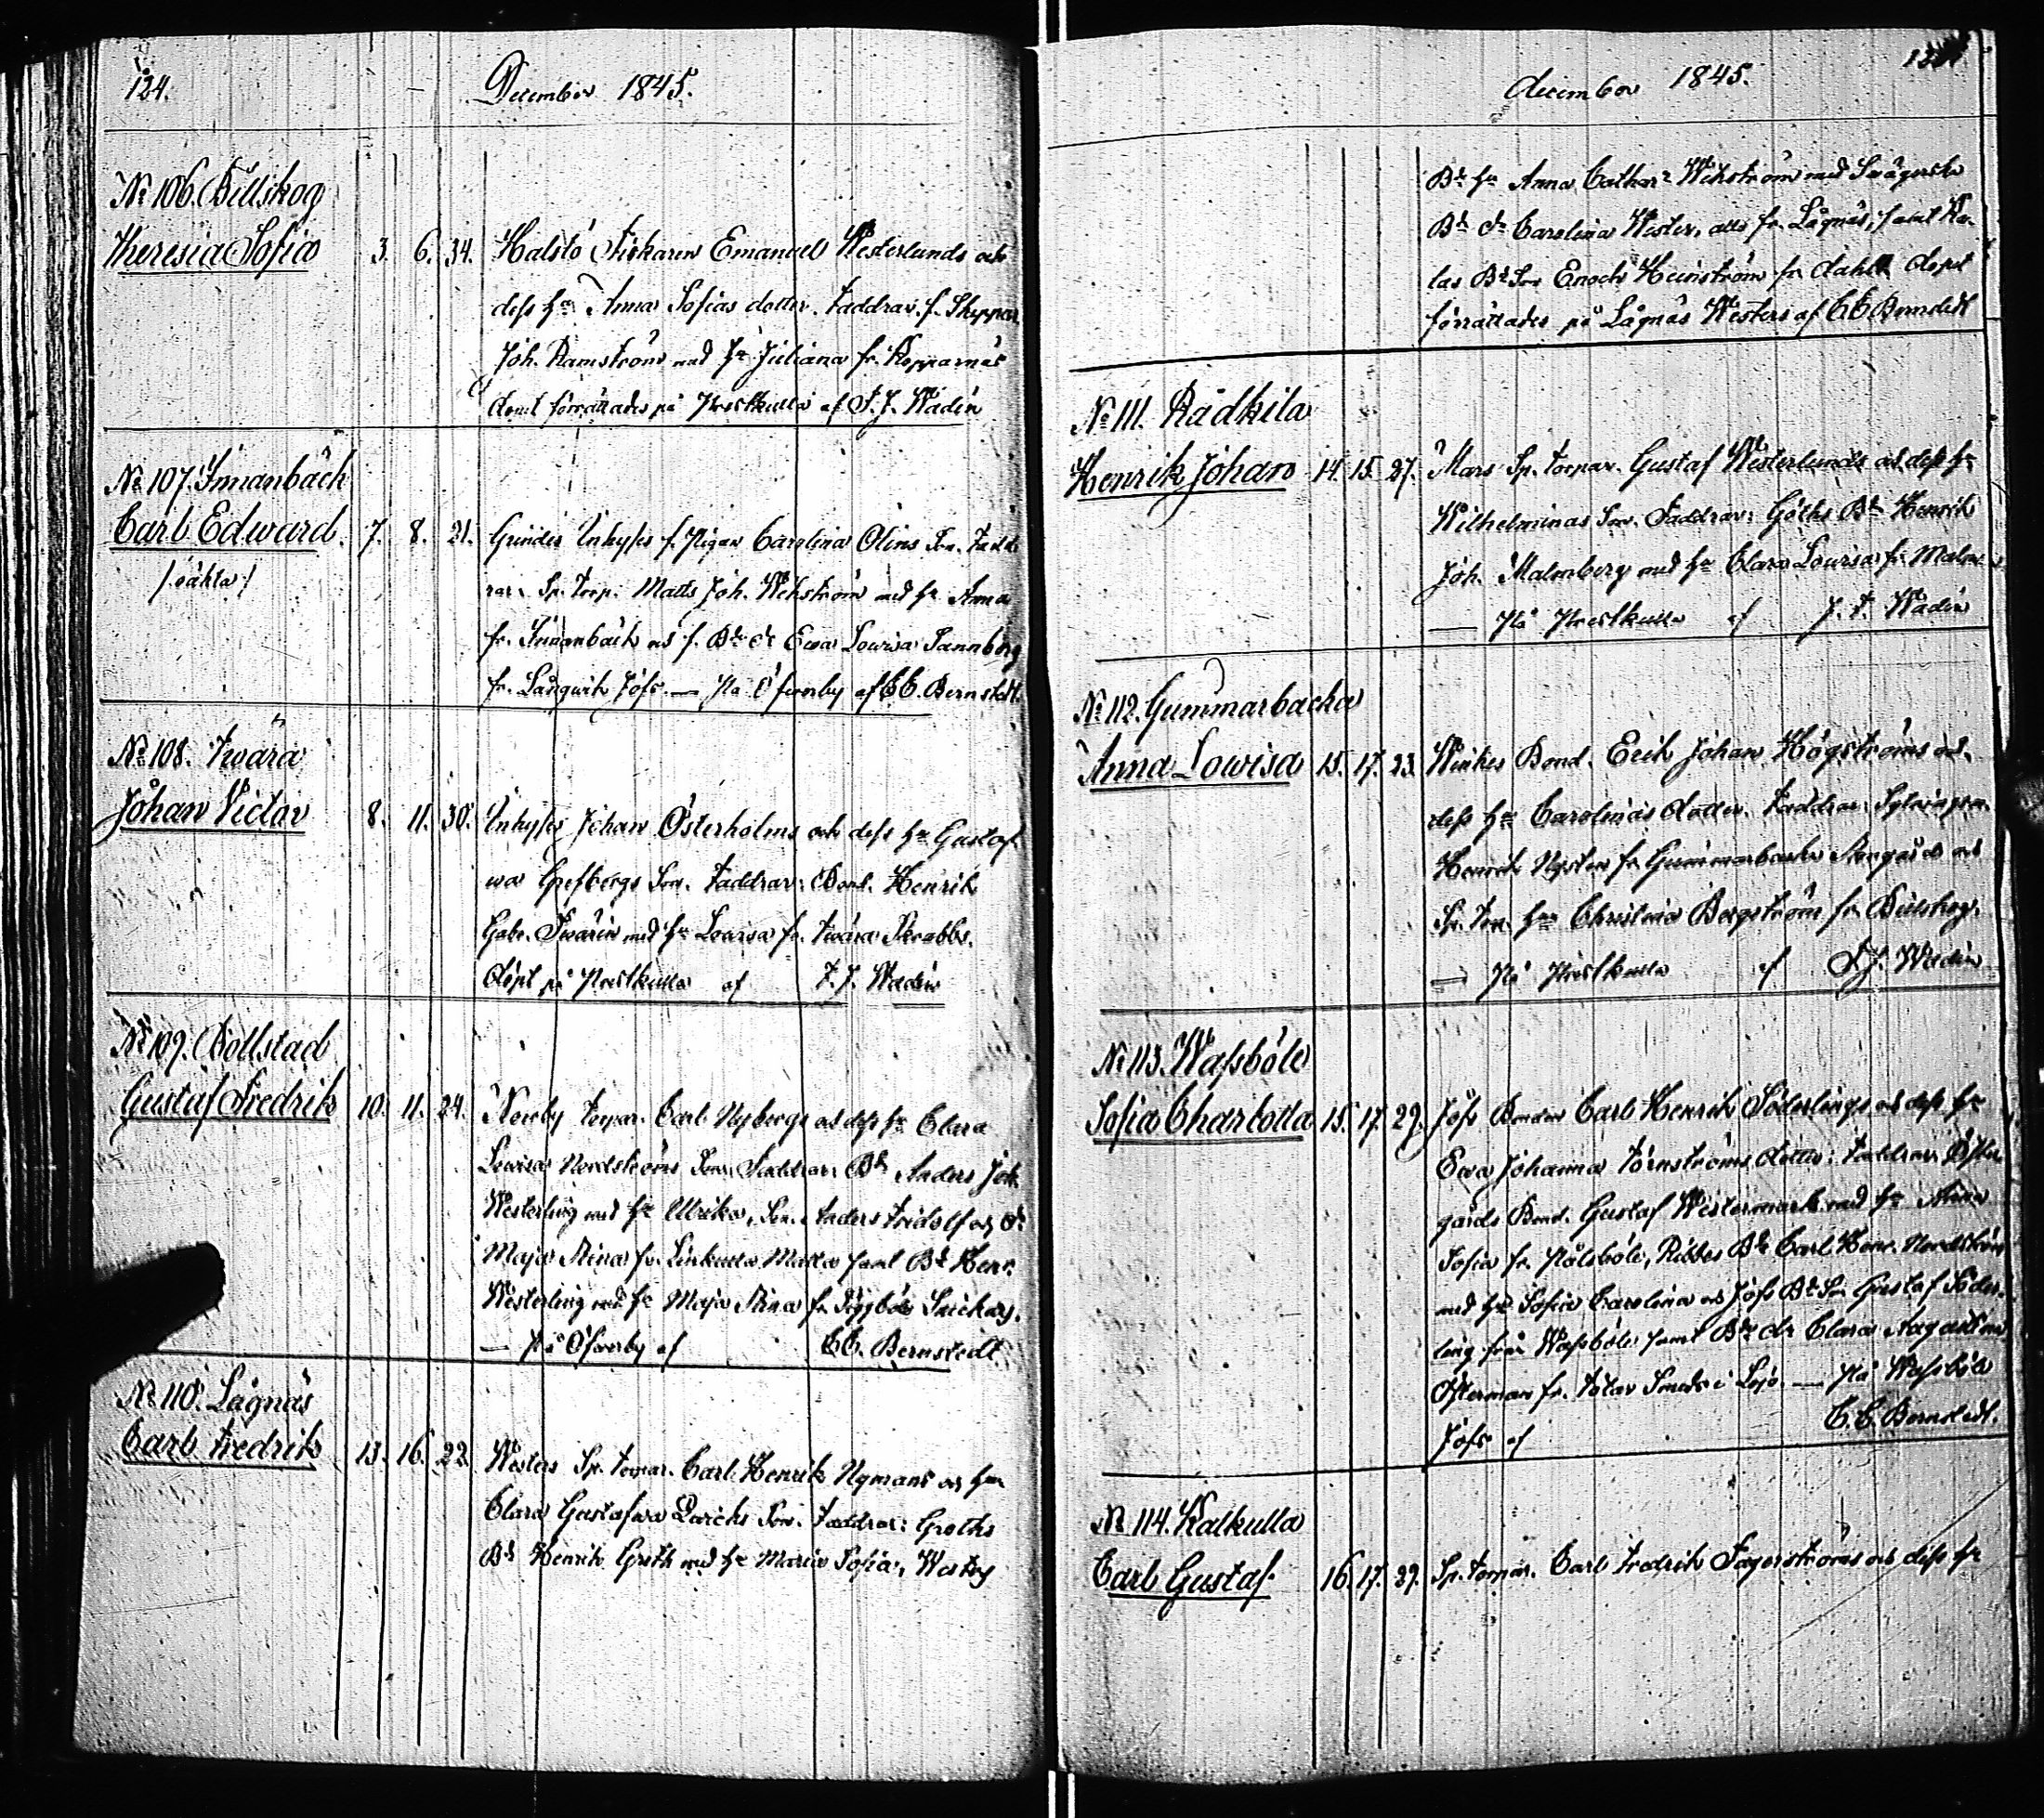 124.
December 1845.
No 106. Billskog
Theresia Sofia 3. 6. 34. Halstö Fiskaren Emanuel Westerlunds och
dess hu Anna Sofias dotter. Faddrar. f. Skeppar
Joh. Ramström med hu Juliana fr. Kopparnäs
döpt förrättades på Prestkulla af F. J. Wadén
No 107. Innanbäck
Carl Edward. 7. 8. 21. Grindes Inhyses f. Pigan Carolina Olins Son. Fadd
/:oäkta:/
rar: Sp. Torp. Matts Joh. Wikström med hu Anna
fr. Innanbäck och f. Bde dr Ewa Lowisa Tannberg
fr. Långwik Jofs. — På Öfwerby af C.C. Bernstedt.
No 108. Twära
Johan Victor 8. 11. 30. Inhyses Johan Österholms och dess hu Gustaf
wa Grefbergs Son. Faddrar: Bond. Henrik
Gabr. Swärin med hu Lowisa fr. Twära Skrabbs.
döpt på Prestkulla af F. J. Wadén
No 109. Bollstad
Gustaf Fredrik 10. 11. 24. Norrby Torpar. Carl Nybergs och dess hu Clara
Lowisa Nordströms Son. Faddrar: Bde Anders Joh.
Westerling med hu Ulrika, Son. Anders Fridolf och dr
Maja Stina fr. Linkulla Matts samt Bd Henr.
Westerling med hu Maja Stina fr. Siggböle Snickars.
— På Öfwerby af C.C. Bernstedt.
No 110. Lågnäs
Carl Fredrik 13. 16. 22. Westers Sp. Torpar. Carl Henrik Nymans och hu
Clara Gustafwa Darichs Son. Faddrar: Groths
Bd Henrik Groth med hu Maria Sofia, Westers
december 1845.
Bde hu Anna Cathar: Wikström med Swägerska
Bde dr Carolina Wester, alla fr. Lågnäs, samt
las Bde Son Enoch Heinström fr. dahl döpt
förrättades på Lågnäs Westers af C.C. Bernstedt
No 111. Rådkila
Henrik Johan 14. 15. 27. Mars Sp. Torpar. Gustaf Westerlunds och dess hu
Wilhelminas Son. Faddrar: Göths Bde Henrik
Joh. Malmberg med hu Clara Lowisa fr.
— På Prestkulla af J. F. Wadén
No 112. Gummarbacka
Anna Lowisa 15. 17. 23. Winkes Bond. Erik Johan Högströms och
dess hu Carolinas dotter. Faddrar:
Henrik Nysten fr. Gummarbacka Stengård och
Sp. Torp. hu Christina Bergström fr. Billskog.
— På Prestkulla af F. J. Wadén
No 113. Wassböle
Sofia Charlotta 15. 17. 29. Jofs Bonden Carl Henrik Söderlings och dess hu
Ewa Johanna Törnströms dotter: Faddrar: Öster
gårds Bond. Gustaf Westermark med hu Anna
Sofia fr. Pålsböle, Ribbes Bde Carl Henr. Nordström
med hu Sofia Carolina och Jofs Bde Son Gustaf Söder
ling från Wassböle samt Bde dr Clara Augustina
Österman fr. Totar Smeds i Lojo. — På Wassböle
Jofs af C.C. Bernstedt.
No 114. Kalkulla
Carl Gustaf 16. 17. 29. Sp. Torpar. Carl Fredrik Fagerströms och dess hu